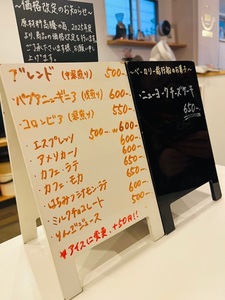 〜価格改定のお知らせ〜
原材料高騰の為、2025年度
より、商品の価格改定を行います。
ご了承下さいます様、お願い申し
上げます。
ブレンド (中深煎り) 500-
・パプアニューギニア (浅煎り) 600-
・コロンビア (深煎り) 600-
・エスプレッソ 550-
・アメリカーノ 500- 600-
・カフェ・ラテ 600-
・カフェ・モカ 600-
・はちみつシナモンラテ 600-
・ミルクチョコレート 600-
・りんごジュース 500-
*アイスに変更、+50円!
〜ベーカリー
お菓子〜
・ニューヨークチーズケーキ
650-